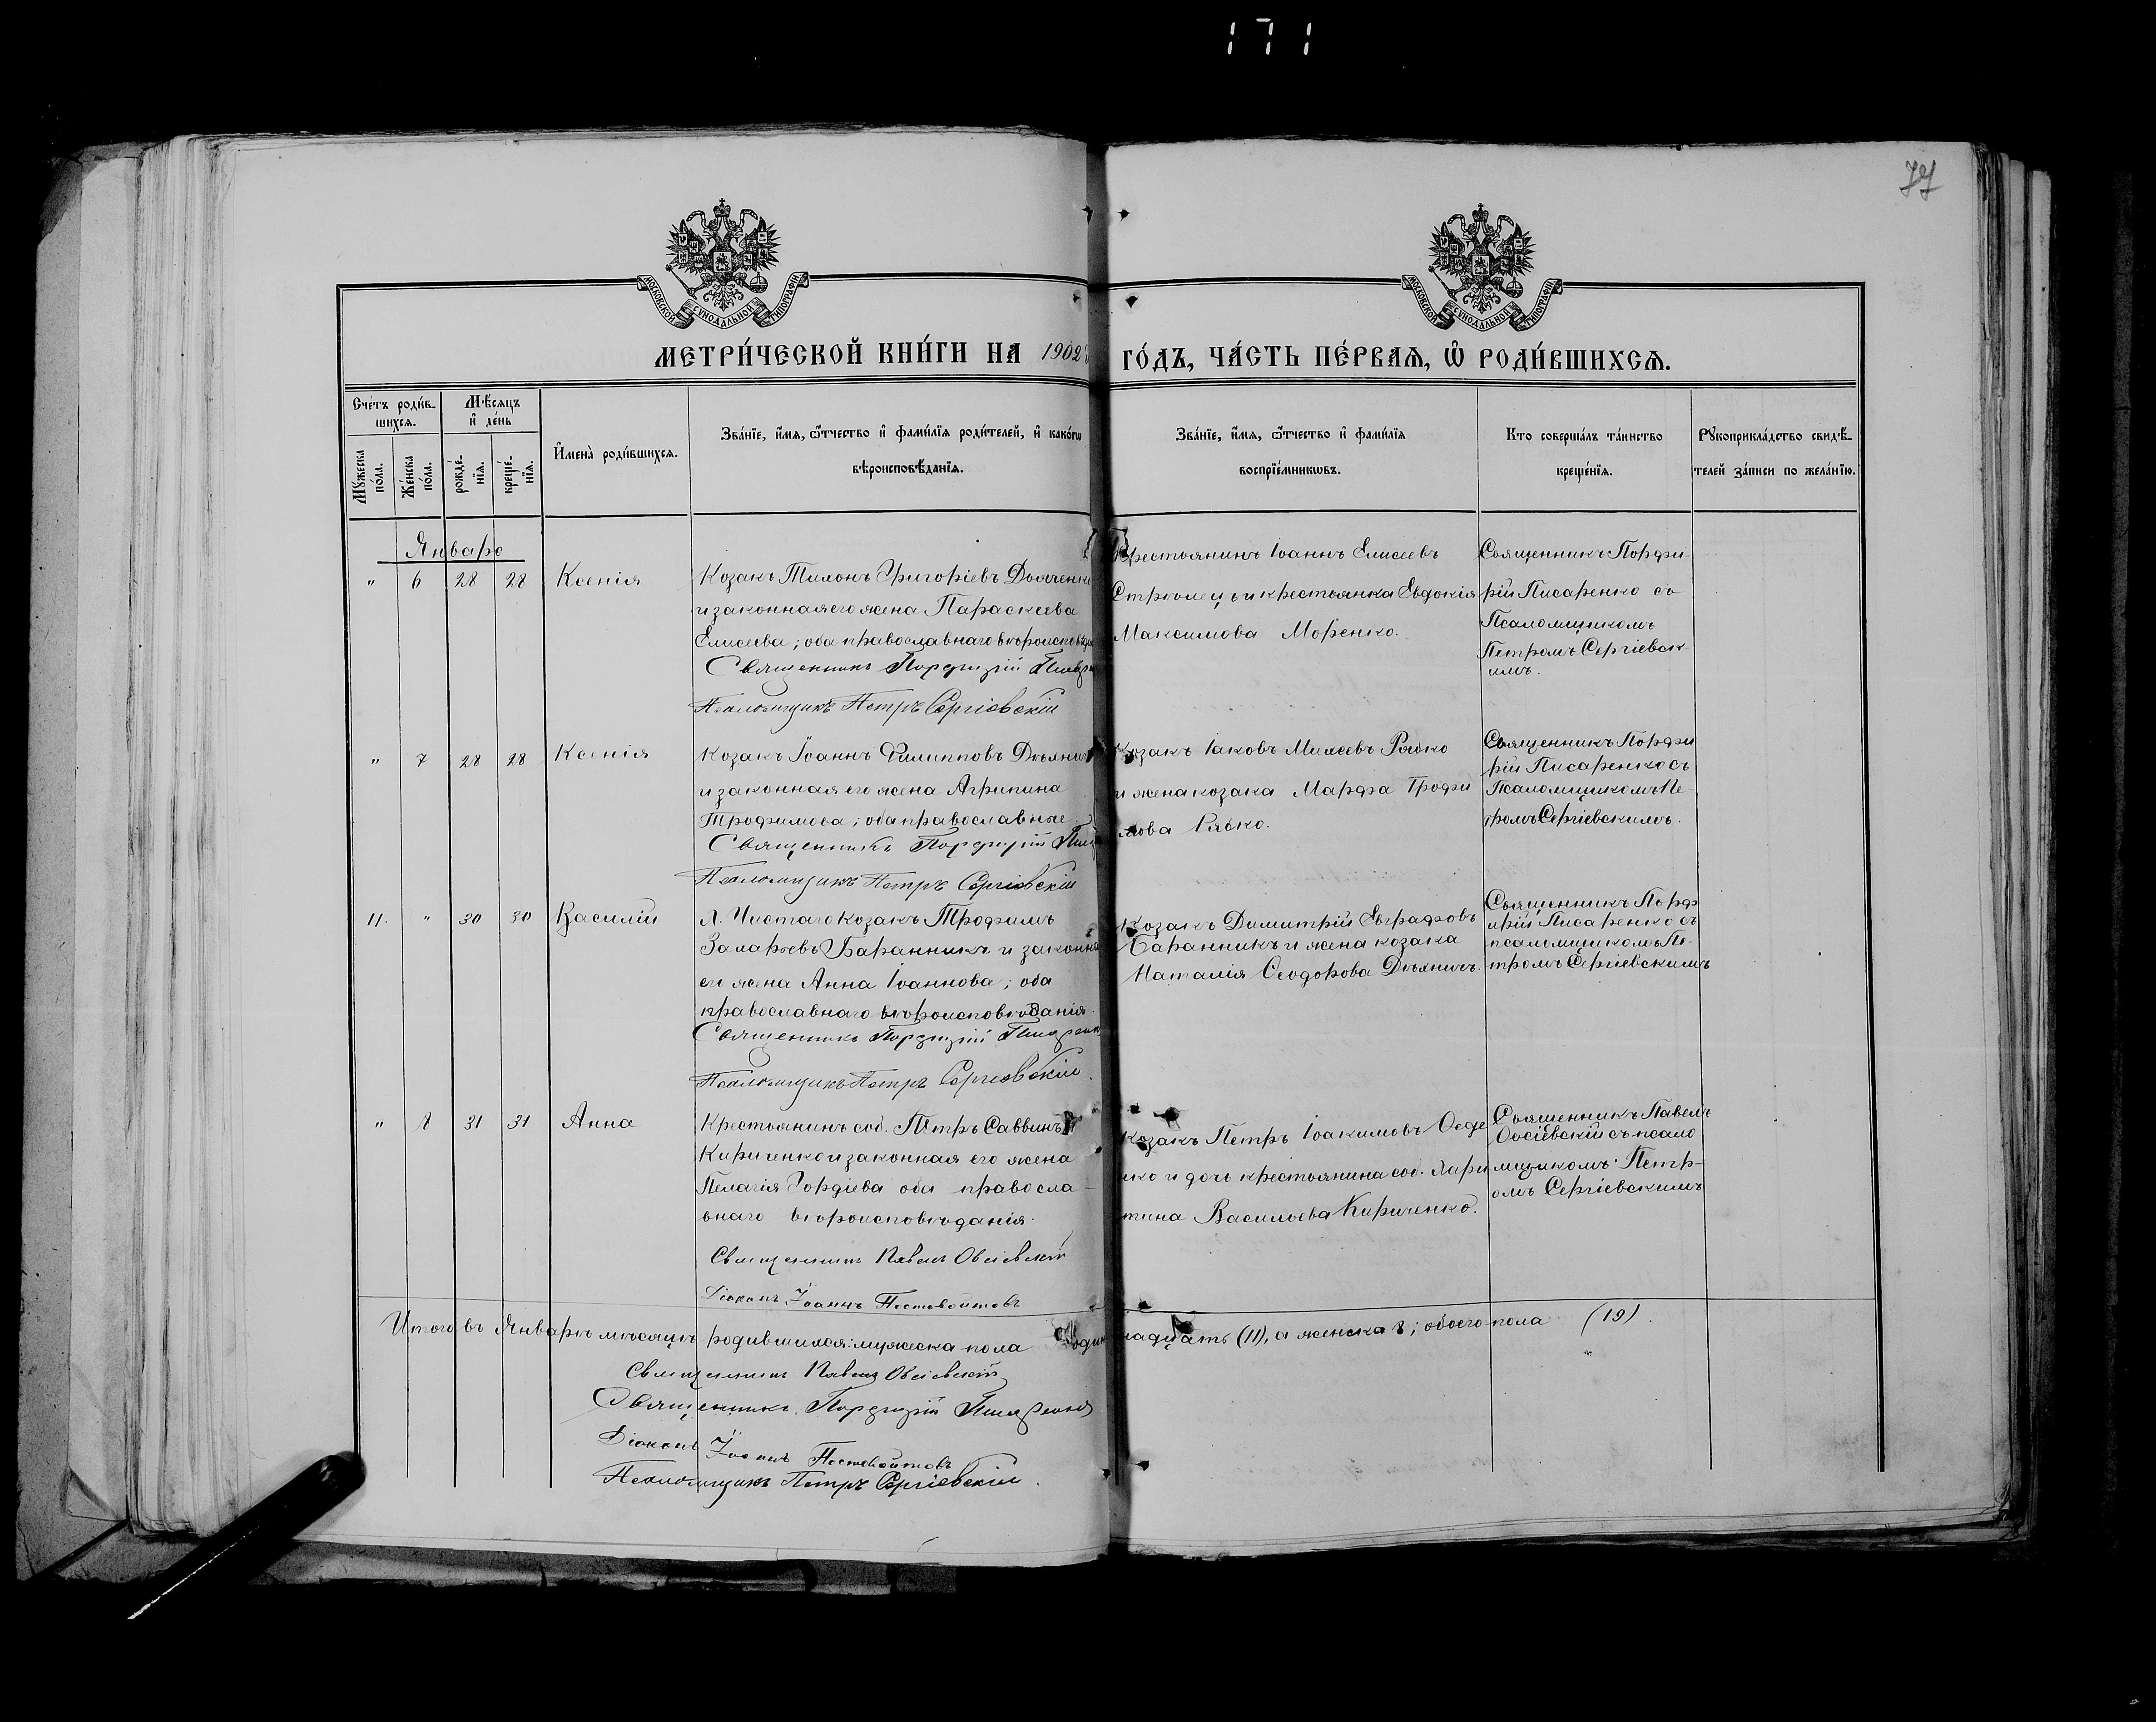 171
77
МОСКОВСКОЙ СѴНОДАЛЬНОЙ ТИПОГРАФІИ
МОСКОВСКОЙ СѴНОДАЛЬНОЙ ТИПОГРАФІИ
МЕТРИ́ЧЕСКОЙ КНИ́ГИ НА 1902 ГО́ДЪ, ЧА́СТЬ ПЕ́РВАѦ, Ѽ РОДИ́ВШИХСѦ.
Сче́тъ роди́в-
шихсѧ.
Мꙋ́жеска
по́ла.
Же́нска
по́ла.
Мѣ́сѧцъ
и҆ де́нь
рожде́-
нїѧ.
креще́-
нїѧ.
И҆мена̀ роди́вшихсѧ.
Зва́нїе, и҆́мѧ, ѻ҆́тчество и҆ фами́лїѧ роди́телей, и҆ како́гѡ
вѣроисповѣ́данїѧ.
Зва́нїе, и҆́мѧ, ѻ҆́тчество и҆ фами́лїѧ
воспрїе́мникѡвъ.
Кто соверша́лъ та́инство
креще́нїѧ.
Рꙋкоприкла́дство свидѣ́-
телей за́писи по жела́нїю.
Январь
" 6 28 28 Ксенія
Козакъ Тихонъ Григоріевъ
и законная его жена Параскева
Елисеева; оба православнаго вѣроисповѣд
Священникъ Порфирій Писаре
Псаломщикъ Петръ Сергіевскій
Крестьянинъ Іоаннъ Елисеевъ
Стрілецъ и крестьянка Евдокія
Максимова Моренко.
Священникъ Порфи-
рій Писаренко съ
Псаломщикомъ
Петромъ Сергіевск-
имъ.
" 7 28 28 Ксенія
Козакъ Іоаннъ Филипповъ
и законная его жена Агрипина
Трофимова; оба православные.
Священникъ Порфирій Писа
Псаломщикъ Петръ Сергіевскій
Козакъ Іаковъ Михеевъ Рябко
и жена козака Марфа Трофи
мова Рябко.
Священникъ Порфи
рій Писаренко съ
Псаломщикомъ Пе
тромъ Сергіевскимъ.
11. " 30 30 Василій
х. Чистаго козакъ Трофимъ
Захарьевъ Баранникъ и законная
его жена Анна Іоаннова; оба
православнаго вѣроисповѣданія.
Священникъ Порфирій Писаренк
Псаломщикъ Петръ Сергіевскій.
Козакъ Димитрій Евграфовъ
Баранникъ и жена козака
Наталія Ѳеодорова
Священникъ Порф
ирій Писаренко съ
псаломщикомъ Пе-
тромъ Сергіевскимъ
" 8 31 31 Анна
Крестьянинъ соб. Петръ Саввинъ
Кириченко и законная его жена
Пелагія Гордіева оба правосла-
внаго вѣроисповѣданія.
Священникъ Павелъ Овсіевскій
Діаконъ Іоаннъ Постовойтовъ
Козакъ Петръ Іоакимовъ
и дочь крестьянина соб. Хари
тина Васильева Кириченко.
Священникъ Павелъ
Овсіевскій съ псало
мщикомъ Петр-
омъ Сергіевскимъ
Итого въ Январѣ мѣсяцѣ родившихся: мужеска пола одиннадцать (11), а женска 8; обоего пола (19).
Священникъ Павелъ Овсіевскій
Священникъ Порфирій Писаренко
Діаконъ Іоаннъ Постовойтовъ
Псаломщикъ Петръ Сергіевскій.